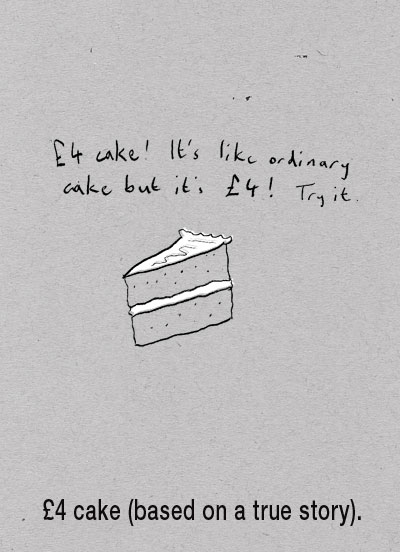 £4 cake! It's like ordinary
cake but it's £4! Try it.
£4 cake (based on a true story).